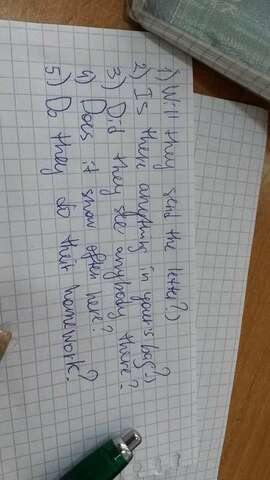 1) Will they send the letter?)
2) Is there anything in your's bag?)
3) Did they see anybody there?
4) Does it snow often here?
5) Do they do their homework?